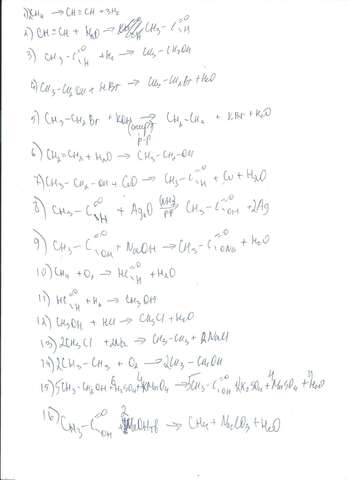 1) 2CH4 → CH≡CH + 3H2
2) CH≡CH + H2O → CH3-C=O H
3) CH3-C=O H + H2 → CH3-CH2OH
4) CH3-CH2OH + HBr → CH3-CH2Br + H2O
5) CH3-CH2Br + KOH (спирт) р-р → CH2-CH2 + KBr + H2O
6) CH2=CH2 + H2O → CH3-CH2-OH
7) CH3-CH2-OH + CuO → CH3-C=O H + Cu + H2O
8) CH3-C=O H + Ag2O NH3 р-р → CH3-C=O OH + 2Ag
9) CH3-C=O OH + NaOH → CH3-C=O ONa + H2O
10) CH4 + O2 → HC=O H + H2O
11) HC=O H + H2 → CH3OH
12) CH3OH + HCl → CH3Cl + H2O
13) 2CH3Cl + 2Na → CH3-CH3 + 2NaCl
14) 2CH3-CH3 + O2 → 2CH3-CH2OH
15) 5CH3-CH2OH + 6H2SO4 + 4KMnO4 → 5CH3-C=O OH + 2K2SO4 + 4MnSO4 + 11H2O
16) CH3-C=O OH + 2NaOH тв → CH4 + Na2CO3 + H2O